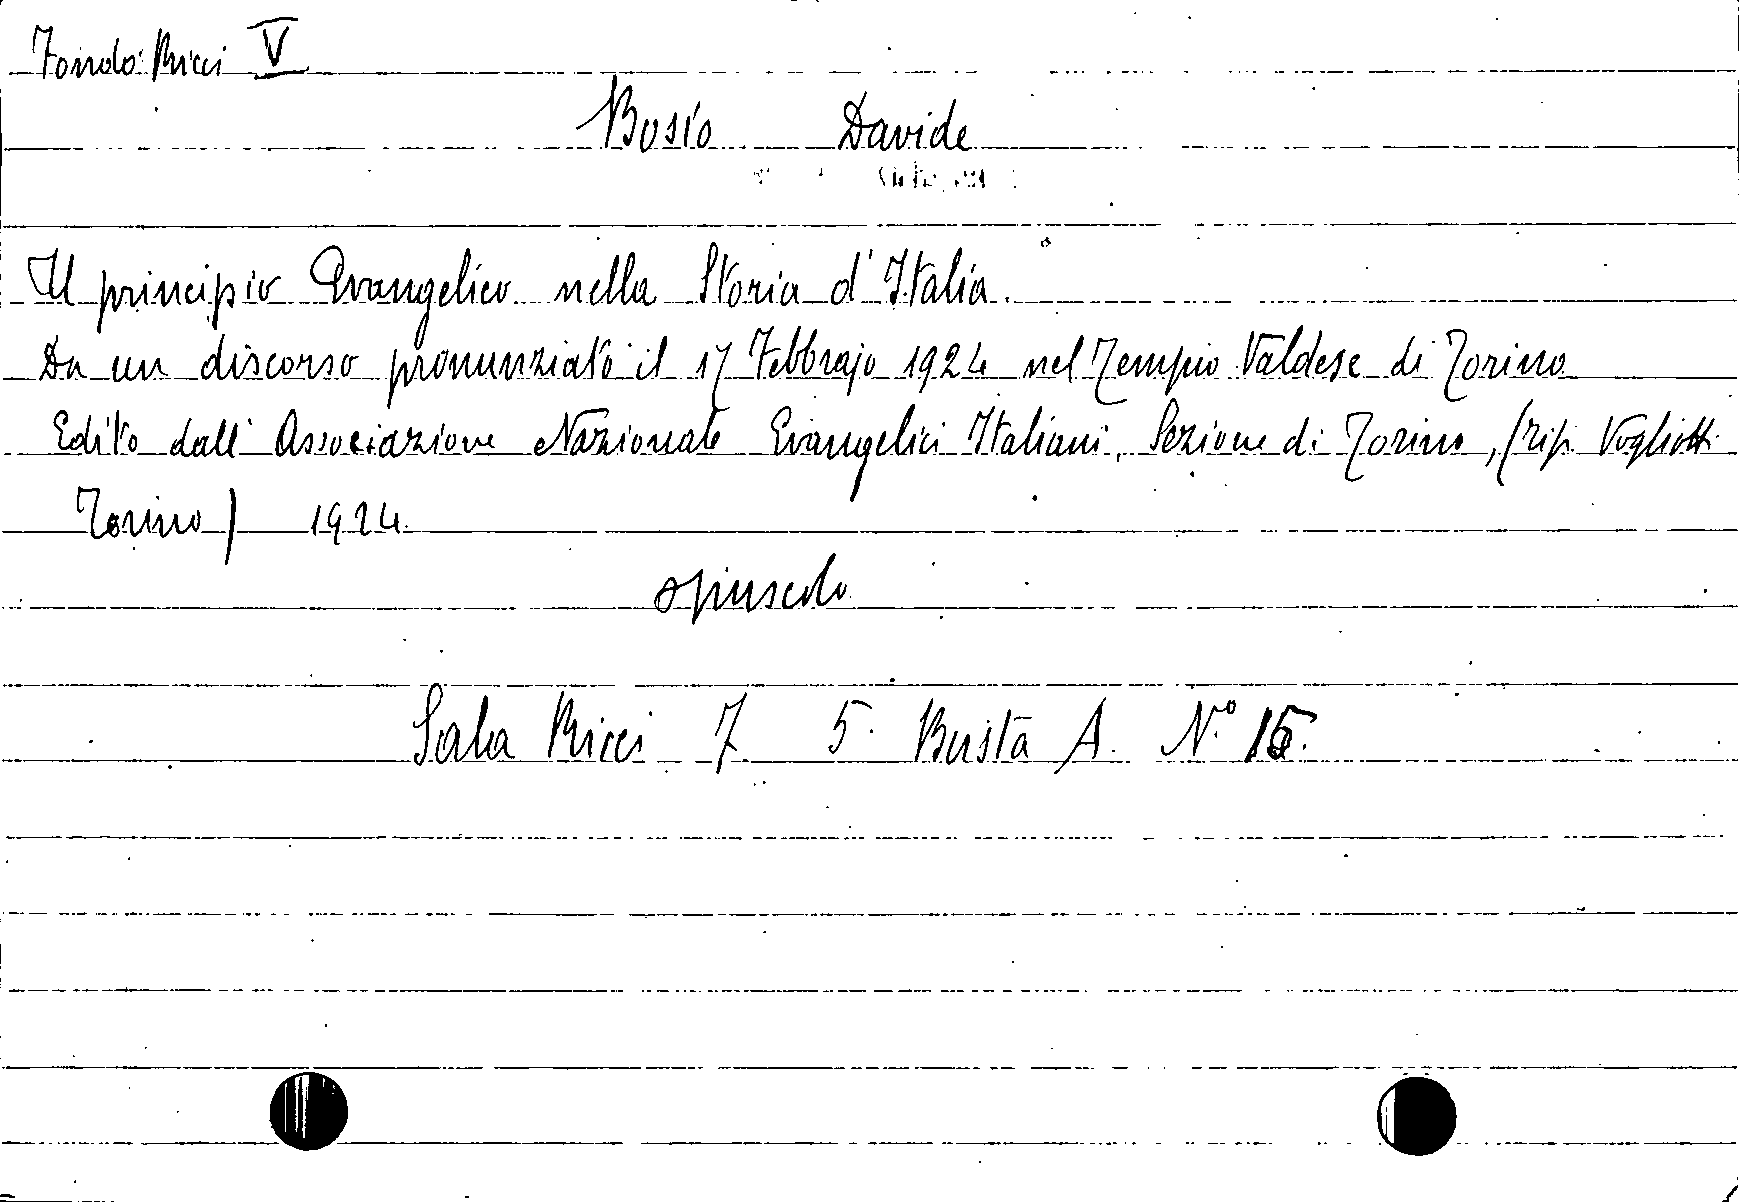 Fondo Ricci V
Bosio Davide
Il principio Evangelico nella Storia d'Italia.
Da un discorso pronunziato il 17 Febbrajo 1924 nel Tempio Valdese di Torino
Edito dall'Associazione Nazionale Evangelici Italiani, Sezione di Torino, (tip. Vogliotti
Torino) 1924.
opuscolo
Sala Ricci 7 5. Busta A. N.º 15.